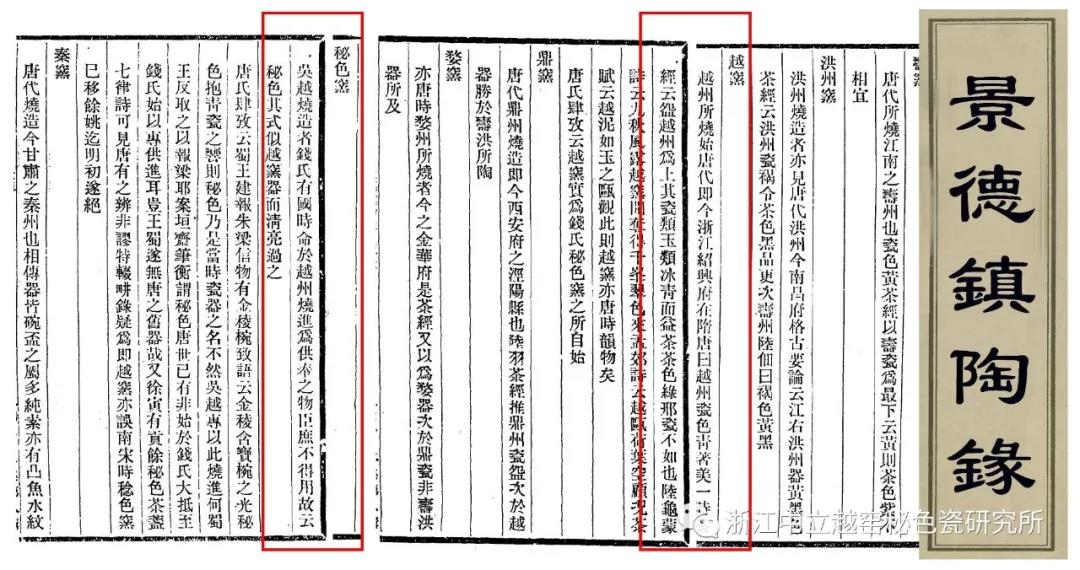 景德鎮陶錄
唐代所燒江南之壽州也瓷色黃茶經以壽瓷為最下云黃則茶色紫
相宜
洪州窯
洪州燒造者亦見唐代洪州今南昌府格古要論云江右洪州器黃黑
茶經云洪州瓷褐令茶色黑品更次壽州陸佃曰褐色黃黑
越窯
越州所燒始唐代即今浙江紹興府在隋唐曰越州瓷色青著美一時
經云盌越州為上其瓷類玉類冰青而益茶茶色綠邢瓷不如也陸龜蒙
詩云九秋風露越窯開奪得千峯翠色來孟郊詩云越甌荷葉空顧况茶
賦云越泥如玉之甌觀此則越窯亦唐時韻物矣
唐氏肆攷云越窯實為錢氏秘色窯之所自始
鼎窯
唐代鼎州燒造即今西安府之涇陽縣也陸羽茶經推鼎州瓷盌次於越
器勝於壽洪所陶
婺窯
亦唐時婺州所燒者今之金華府是茶經又以為婺器次於鼎瓷非壽洪
器所及
秘色窯
吳越燒造者錢氏有國時命於越州燒進為供奉之物臣庶不得用故云
秘色其式似越窯器而清亮過之
唐氏肆攷云蜀王建報朱梁信物有金稜椀致語云金稜含寶椀之光秘
色抱青瓷之響則秘色乃是當時瓷器之名不然吳越專以此燒進何蜀
王反取之以報梁耶案垣齋筆衡謂秘色唐世已有非始於錢氏大抵至
錢氏始以專供進耳豈王蜀遂無唐之舊器哉又徐寅有貢餘秘色茶盞
七律詩可見唐有之辨非謬特輟畊錄疑為即越窯亦誤南宋時秘色窯
已移餘姚迄明初遂絕
秦窯
唐代燒造今甘肅之秦州也相傳器皆碗盃之屬多純素亦有凸魚水紋
浙江中立越窑秘色瓷研究所